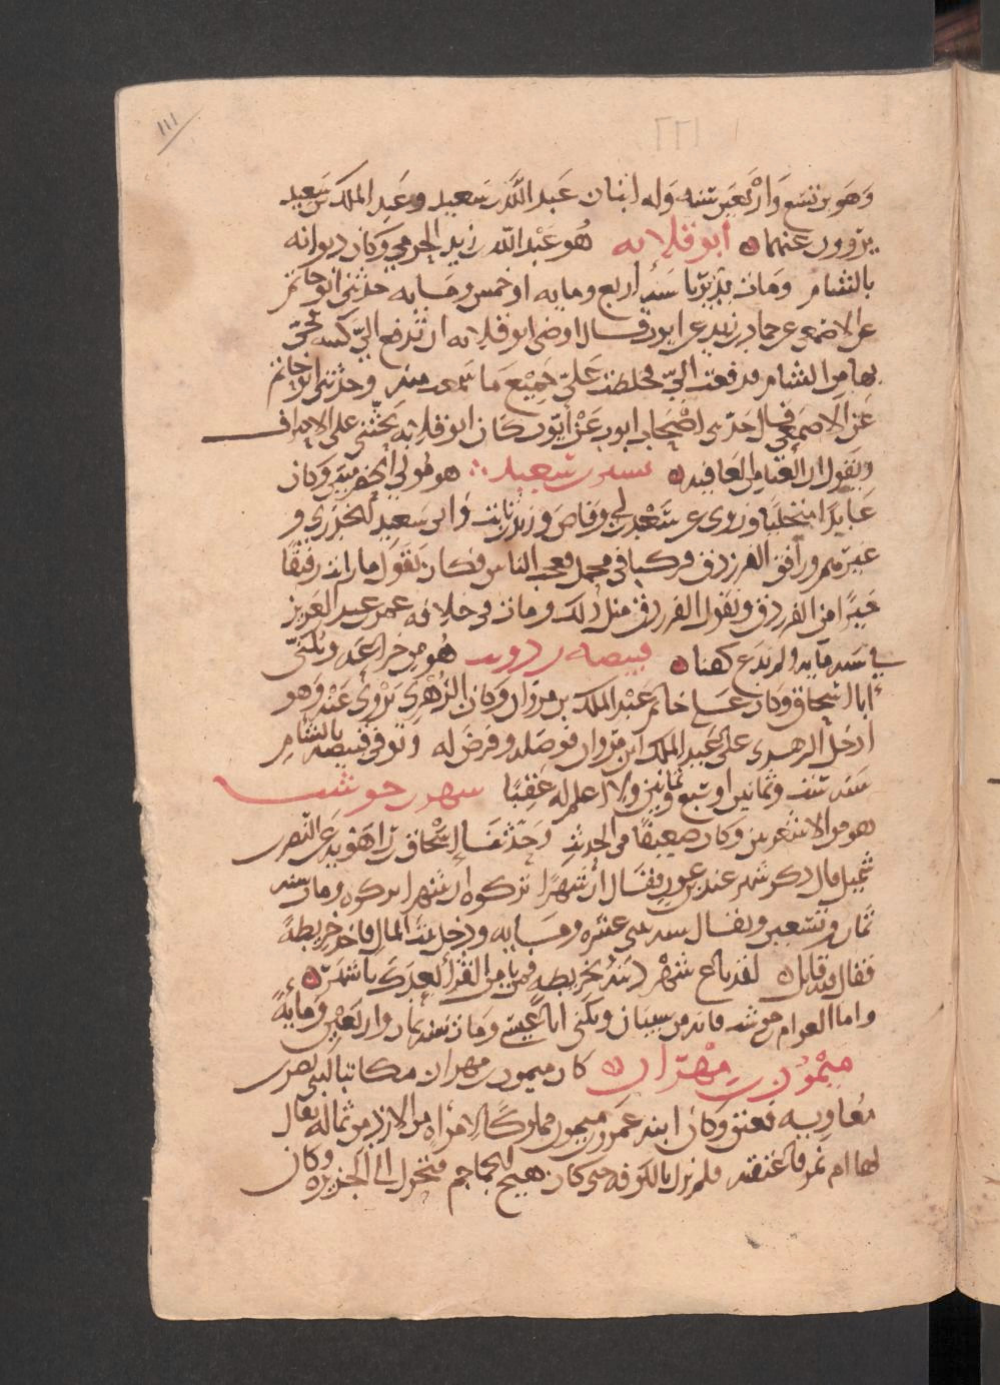 ١١١
وهو بن تسع وأربعين سنه وله ابنان عبد الله بن سعيد وعبد الملك بن سعيد
يروون عنهما ۞ أبو قلابه هو عبد الله بن زيد الجرمي وكان ديوانه
بالشام ومات بديريا سنه اربع ومايه او خمس ومايه حدثني ابو حاتم
عن الاصمعي عن حماد بن زيد عن ايوب قال اوصى ابو قلابه ان تدفع الي كتبه
بها من الشام فدفعت الي فخلطت علي جميع ما سمعت منه وحدثني ابو حاتم
عن الاصمعي قال حدثني اصحاب ايوب عن أيوب كان ابو قلابه يحثني على الاحتراف
ويقول ان الغنا من العافيه ۞ بسر بن سعيد هو مولي الحضرميين وكان
عابدا متخليا وروى عن سعد بن ابي وقاص وزيد بن ثابت وابي سعيد الخدري و
غيرهم ورافق الفرزدق فركبا في محمل فعجب الناس فكان يقول ما رايت رفيقا
خيرا من الفرزدق ويقول الفرزدق مثل ذلك ومات في خلافه عمر بن عبد العزيز
في سنه مايه ولم يدع كفنا ۞ قبيصه بن ذويب هو من خزاعه ويكنى
أبا اسحاق وكان على خاتم عبد الملك بن مروان وكان الزهري يروي عنه وهو
ادخل الزهري على عبد الملك ابن مروان فوصله وفرض له وتوفي قبيصه بالشام
سنه ست وثمانين او سبع وثمانين ولا اعلم له عقبا شهر بن حوشب
هو من الاشعريين وكان ضعيفا في الحديث وحدثنا اسحاق بن راهويه عن النضر بن
شميل قال ذكر شهر عند بن عون فقال ان شهرا نزكوه ان شهرا نزكوه ومات سنه
ثمان وتسعين ويقال سنه اثني عشره ومايه ودخل بيت المال فاخذ خريطة
فقال فيه قايل ۞ لقد باع شهر دينه بخريطه فمن يامن القراء بعدك يا شهر ۞
واما العوام بن حوشب فانه من شيبان ويكنى ابا عيسى ومات سنه ثمان واربعين ومائة
ميمون بن مهران ۞ كان ميمون بن مهران مكاتبا لبني نصر بن
معاويه فعتق وكان ابنه عمرو بن ميمون مملوكا لامراه من الازد من ثماله يقال
لها ام نمر فاعتقته فلم يزل بالكوفه حتى كان هيج الجماجم فتحول الى الجزيره وكان